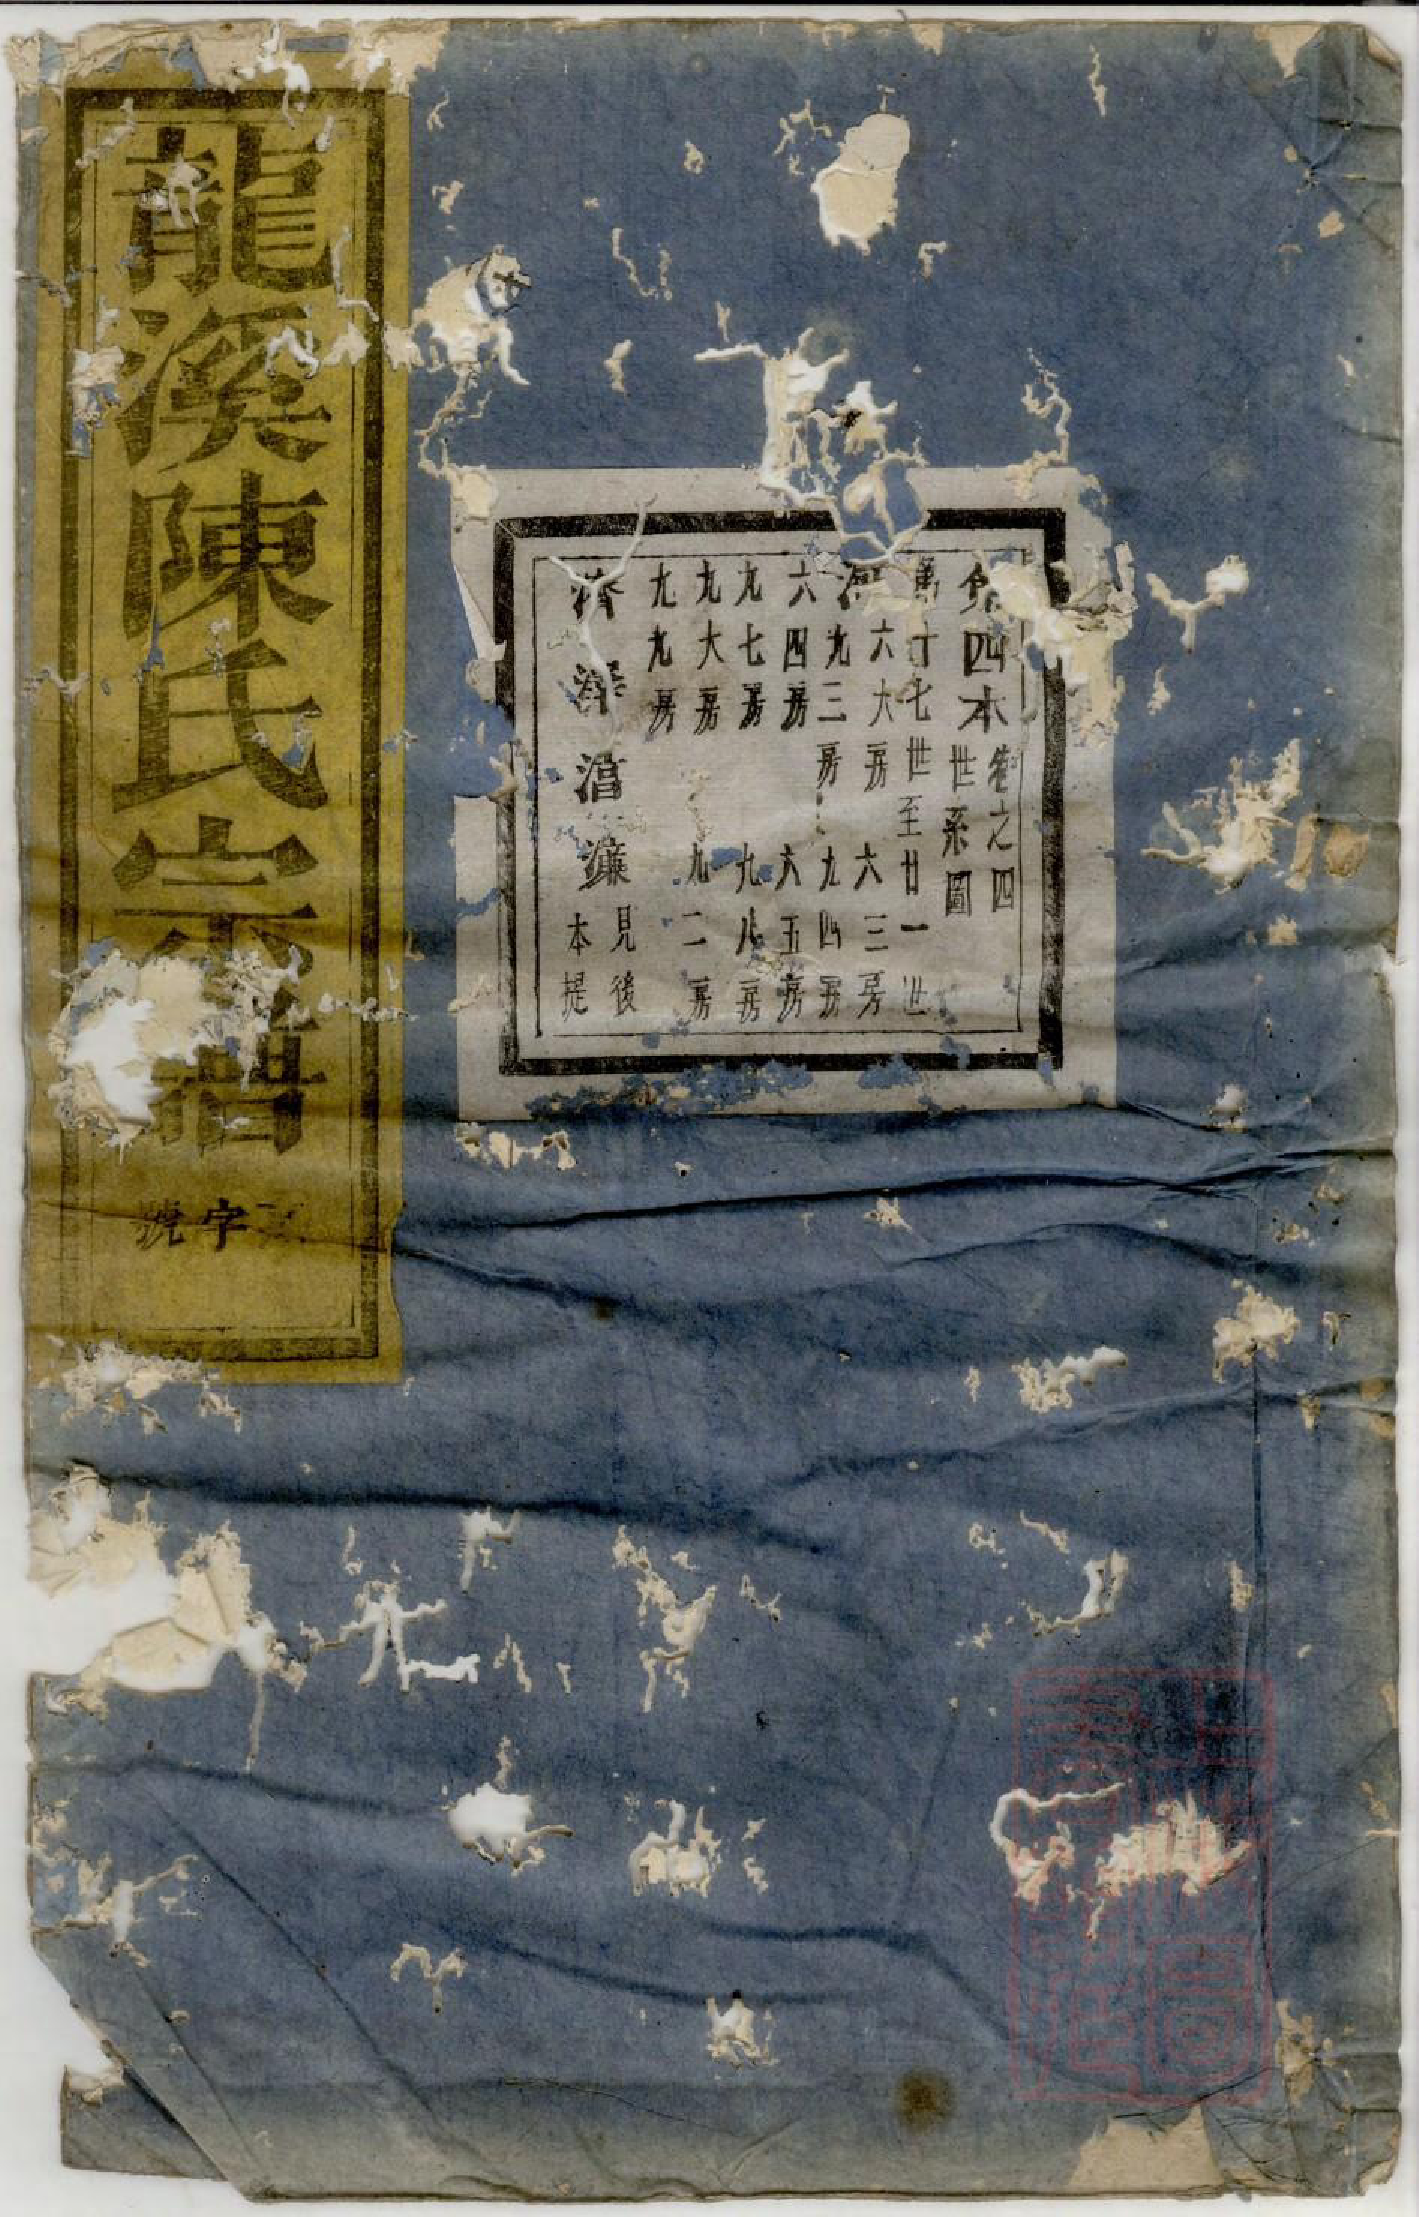 龍溪陳氏宗譜
字號
第四本
卷之四
世系圖
十七世至廿一世
六大房 六三房
九三房 九四房
六四房 六五房
九七房 九八房
九大房 九二房
九九房
濟 濂
見後
本提